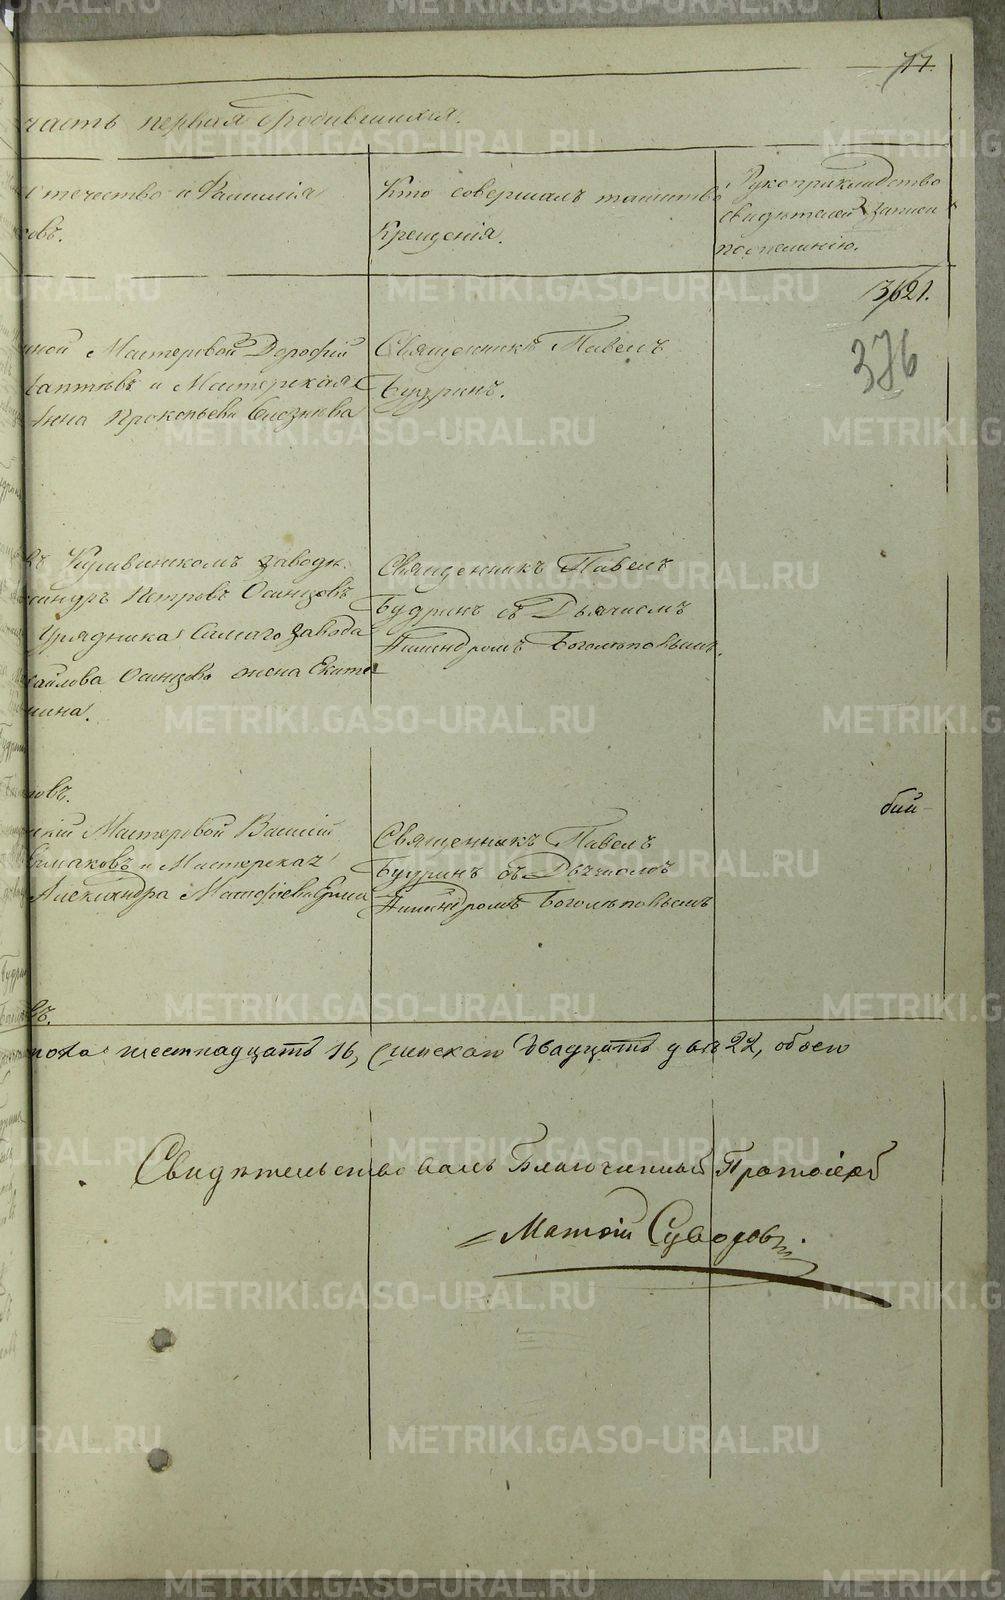 77.
часть первая о родившихся.
отечество и Фамилія
овъ.
Кто совершалъ таинство
Крещенія.
Рукоприкладство
свидѣтелей записи
по желанію.
13621.
376
ной Мастеровой Дорофій
Лаптевъ и Мастерская
Анна Прокопьева
Священникъ Павелъ
Будринъ.
въ Кушвинскомъ заводѣ.
сандръ Петровъ Осинцовъ
Урядника Самаго завода
хайлова Осинцова жена Екате
рина.
Священникъ Павелъ
Будринъ съ Дьячкомъ
Боголѣповымъ.
овъ.
скій Мастеровой Василій
Ермаковъ и Мастерская
Александра Матфіева Ерма
Священникъ Павелъ
Будринъ съ Дьячкомъ
Боголѣповымъ
бій
въ.
пола шестнадцать 16, женскаго двадцать два 22, обоего
Свидѣтельствовалъ Благочинный Протоіерей
Матѳій Суворовъ.
METRIKI.GASO-URAL.RU